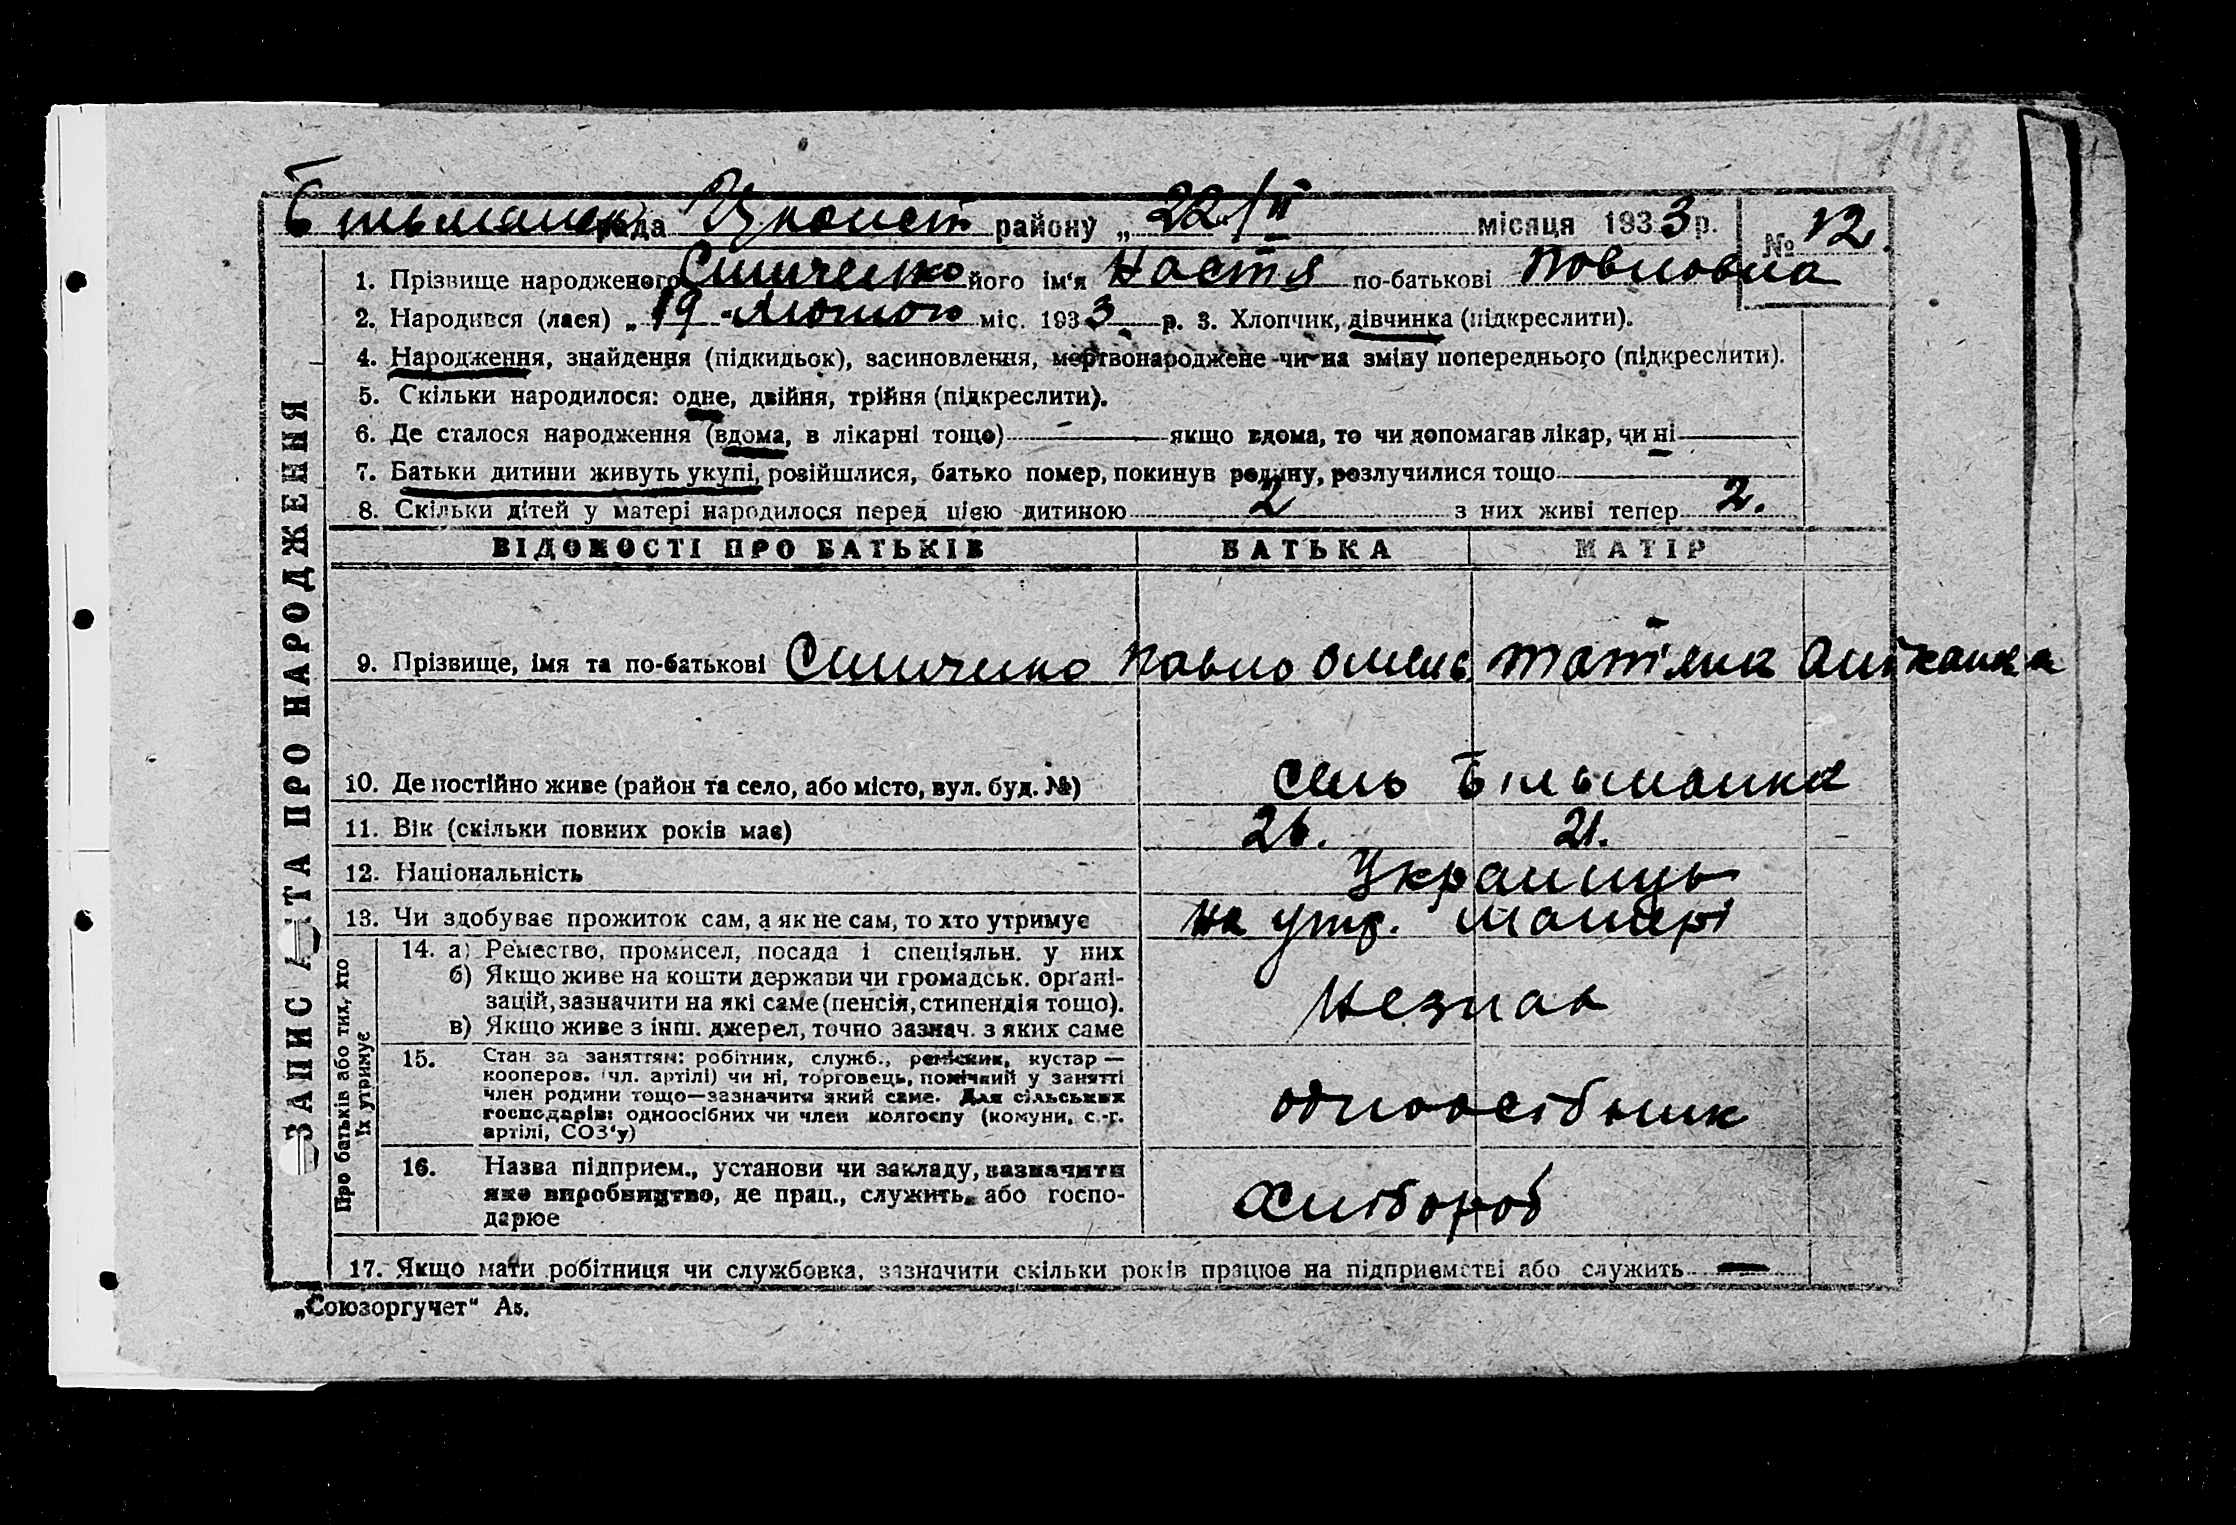 рада району „ 22/II місяця 1933 р. № 12.
1. Прізвище народженого його ім'я Настя по-батькові Повловна
2. Народився (лася) „ 19 " Лютого міс. 1933 р. 3. Хлопчик, дівчинка (підкреслити).
4. Народження, знайдення (підкидьок), засиновлення, мертвонароджене чи на зміну попереднього (підкреслити).
5. Скільки народилося: одне, двійня, трійня (підкреслити).
6. Де сталося народження (вдома, в лікарні тощо) — якщо вдома, то чи допомагав лікар, чи ні
7. Батьки дитини живуть укупі, розійшлися, батько помер, покинув родину, розлучилися тощо
8. Скільки дітей у матері народилося перед цією дитиною 2 з них живі тепер 2.
ВІДОМОСТІ ПРО БАТЬКІВ БАТЬКА МАТІР
9. Прізвище, імя та по-батькові Павло Тат'яна
10. Де постійно живе (район та село, або місто, вул. буд. №) село Більманка
11. Вік (скільки повних років має) 26. 21.
12. Національність Украинць
13. Чи здобуває прожиток сам, а як не сам, то хто утримує на утр. матері
14. а) Ремество, промисел, посада і спеціяльн. у них
б) Якщо живе на кошти держави чи громадськ. органі-
зацій, зазначити на які саме (пенсія, стипендія тощо).
в) Якщо живе з інш. джерел, точно зазнач. з яких саме
15. Стан за заняттям: робітник, служб., ремісник, кустар —
кооперов. (чл. артілі) чи ні, торговець, помічний у занятті
член родини тощо—зазначити який саме. Для сільських
господарів: одноосібних чи член колгоспу (комуни, с.-г.
артілі, СОЗ'у) одноосібник
16. Назва підприєм., установи чи закладу, зазначити
яке виробництво, де прац., служить, або госпо-
дарює Хлібороб
17. Якщо мати робітниця чи службовка, зазначити скільки років працює на підприємстві або служить —
ЗАПИС АКТА ПРО НАРОДЖЕННЯ
Про батьків або тих, хто
їх утримує
„Союзоргучет" Аз.